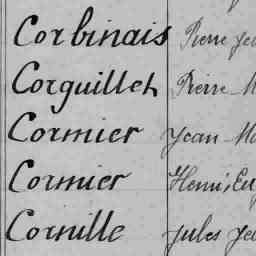 Corbinais Pierre Jea
Corguillet Pierre M
Cormier Jean Ma
Cormier Henri, Eu
Cornille Jules Je